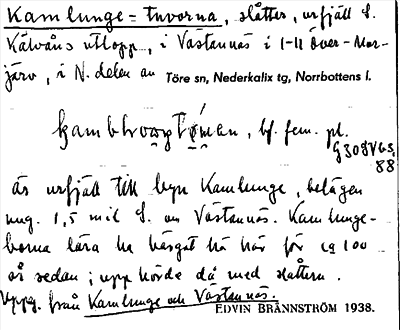 Kamlunge=tuvorna, slåtter, urfjäll S.
Kälvåns utlopp, i Västannäs i 1-11 Över-Mor-
järv, i N. delen av Töre sn, Nederkalix tg, Norrbottens l.
bf. fem. pl.
88
är urfjäll till byn Kamlunge, belägen
ung. 1,5 mil S. om Västannäs. Kamlunge-
borna lära ha bärgat hö här för ca 100
år sedan; upphörde då med slåttern.
Uppg. från Kamlunge och Västannäs.
EDVIN BRÄNNSTRÖM 1938.